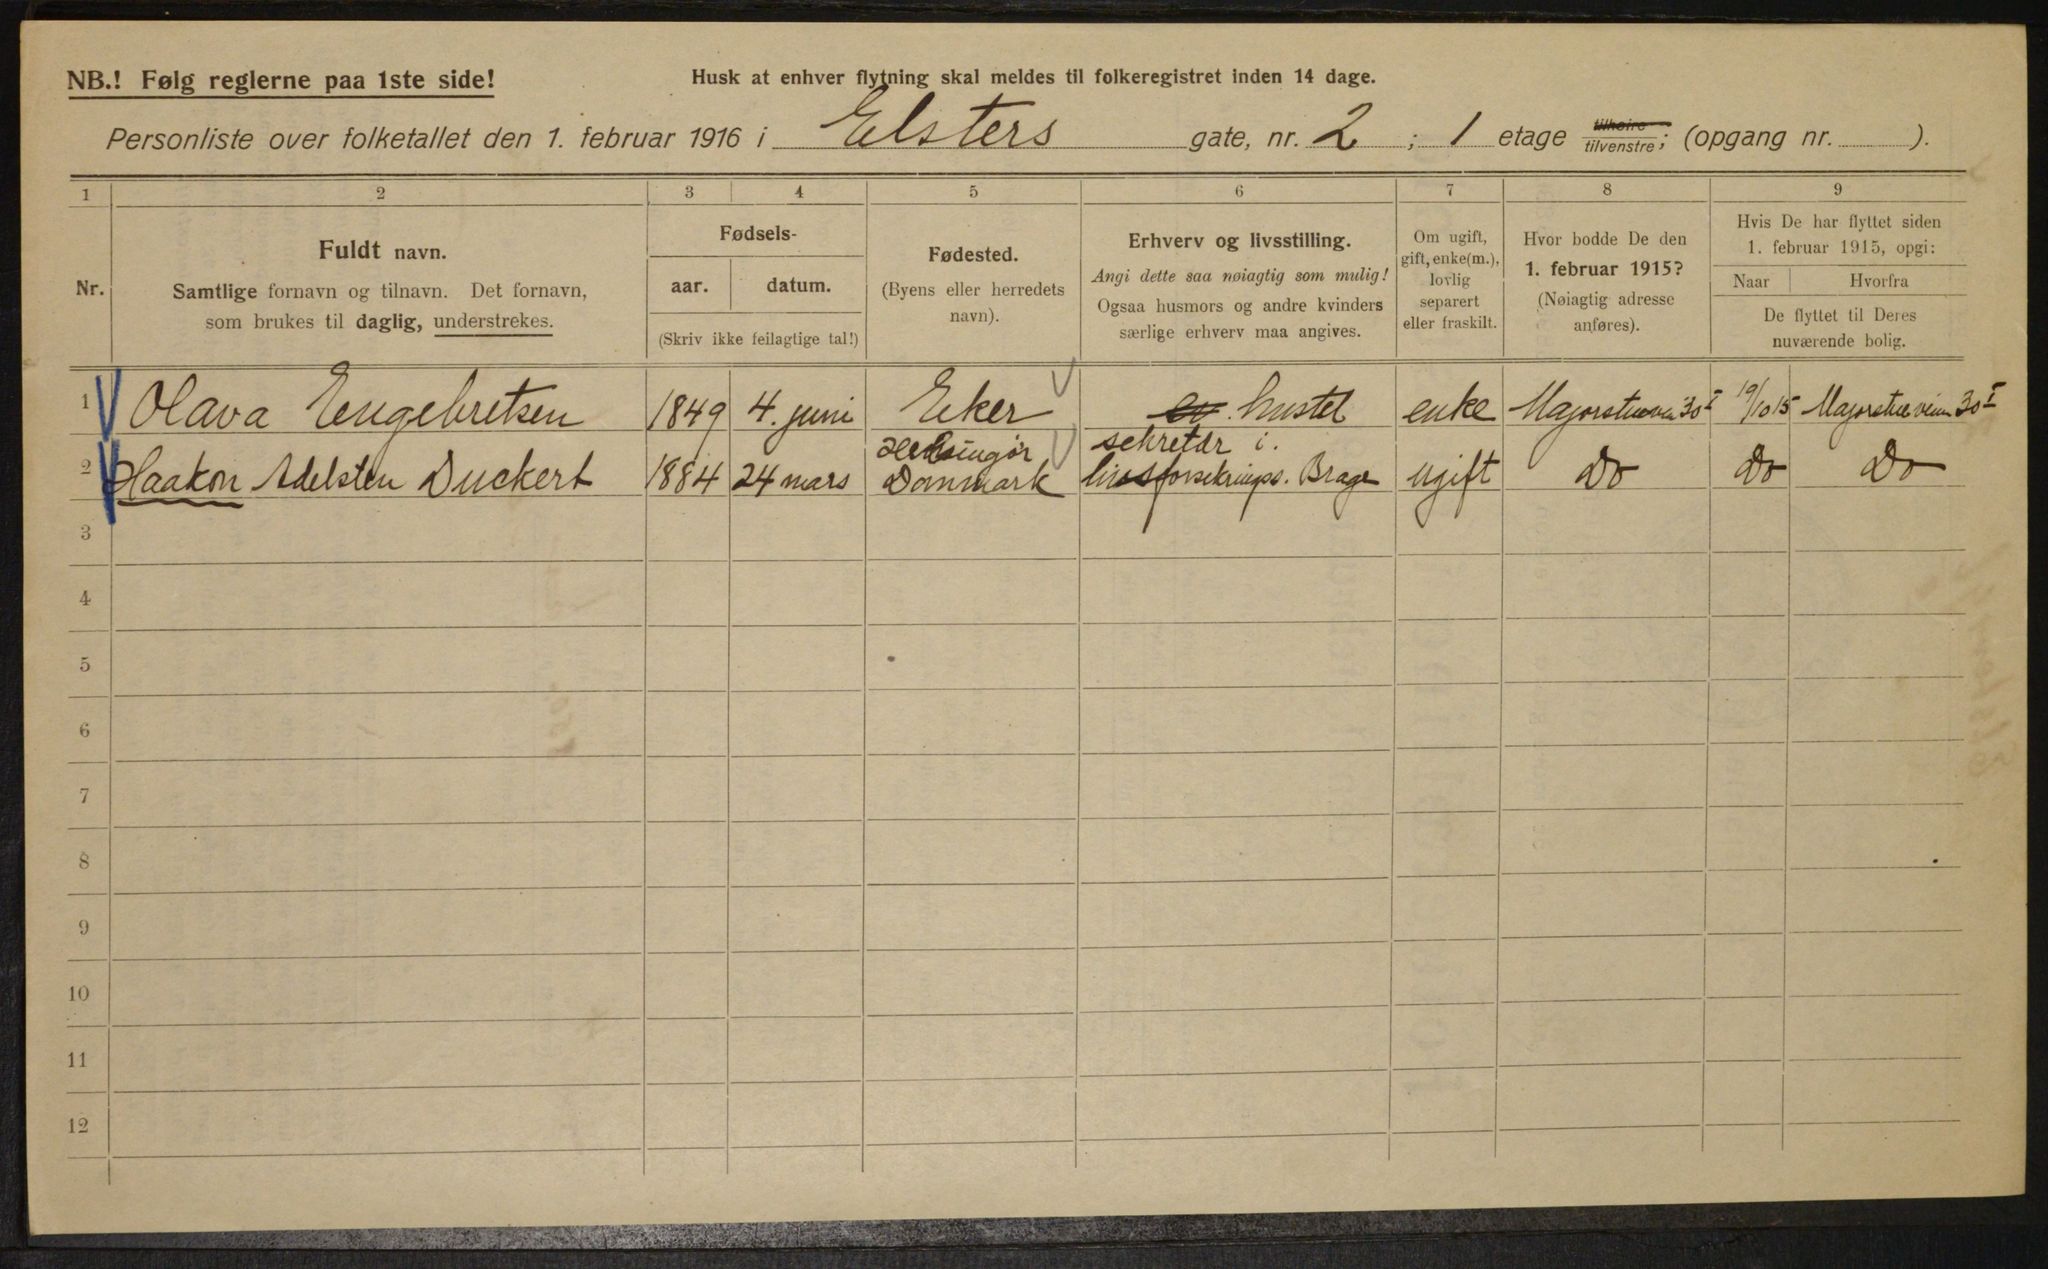 NB.! Følg reglerne paa 1ste side!
Husk at enhver flytning skal meldes til folkeregistret inden 14 dage.
Personliste over folketallet den 1. februar 1916 i Elsters gate, nr. 2 ; 1 etage tilhøire tilvenstre; (opgang nr. ).
1 2 3 4 5 6 7 8 9
Nr.
Fuldt navn.
Samtlige fornavn og tilnavn. Det fornavn,
som brukes til daglig, understrekes.
Fødsels-
aar. datum.
(Skriv ikke feilagtige tal!)
Fødested.
(Byens eller herredets
navn).
Erhverv og livsstilling.
Angi dette saa nøiagtig som mulig!
Ogsaa husmors og andre kvinders
særlige erhverv maa angives.
Om ugift,
gift, enke(m.),
lovlig
separert
eller fraskilt.
Hvor bodde De den
1. februar 1915?
(Nøiagtig adresse
anføres).
Hvis De har flyttet siden
1. februar 1915, opgi:
Naar Hvorfra
De flyttet til Deres
nuværende bolig.
1 Olava Engebretsen 1849 4. juni Eker hustel enke Majorstuveien 30 I 19/10 15 Majorstueveien 30 I
Helsingør sekretær i.
2 Haakon Adelsten Duckert 1884 24 mars Danmark livsforsekrings. Brage ugift Do Do Do
3
4
5
6
7
8
9
10
11
12